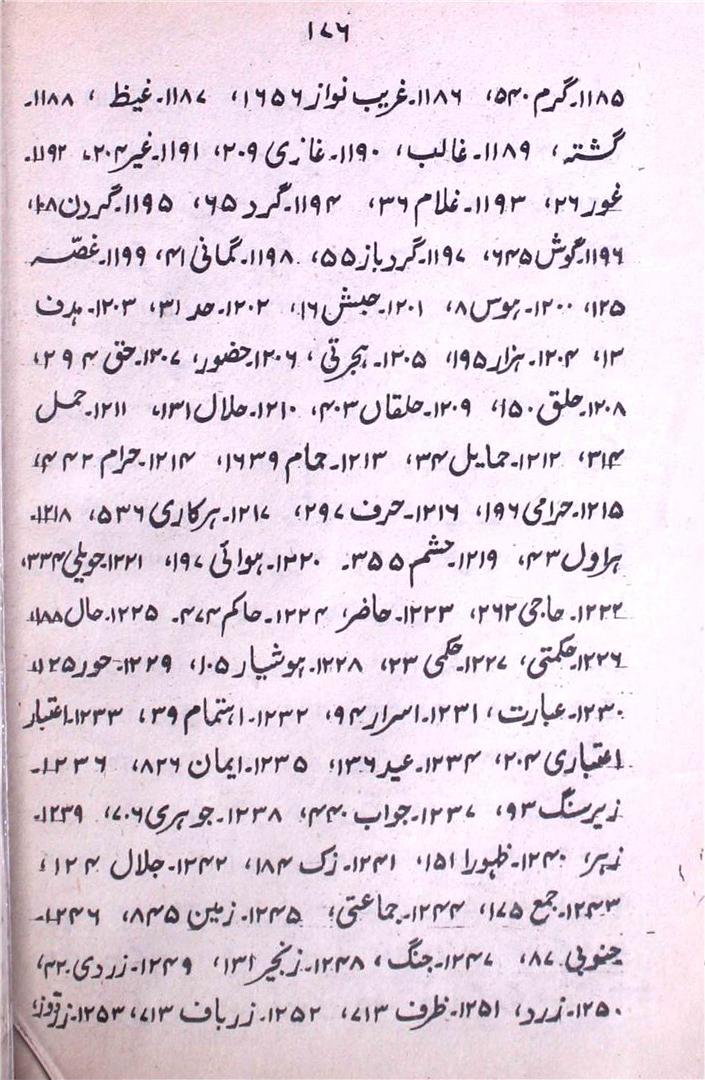 ۱۷۶
۱۱۸۵۔گرم ۵۴۰، ۱۱۸۶۔غریب نواز ۱۶۵۶، ۱۱۸۷۔غیظ ، ۱۱۸۸۔
گشتہ، ۱۱۸۹۔غالب، ۱۱۹۰۔غازی ۲۰۹، ۱۱۹۱۔غیر ۲۰۴، ۱۱۹۲۔
غور ۲۶، ۱۱۹۳۔غلام ۳۶، ۱۱۹۴۔گرد ۶۵، ۱۱۹۵۔گردن
۱۱۹۶۔گوش ۶۴۵، ۱۱۹۷۔گردباز ۵۵، ۱۱۹۸۔گمانی ۴۱، ۱۱۹۹۔غصّہ
۱۲۵، ۱۲۰۰۔ہوس ۸، ۱۲۰۱۔حبش ۱۶، ۱۲۰۲۔حد ۳۱، ۱۲۰۳۔ہدف
۱۲، ۱۲۰۴۔ہزار ۱۹۵، ۱۲۰۵۔ہجرتی ، ۱۲۰۶۔حضور، ۱۲۰۷۔حق ۲۹۴،
۱۲۰۸۔حلق ۱۵۰، ۱۲۰۹۔حلقاں ۴۰۳، ۱۲۱۰۔حلال ۱۳۱، ۱۲۱۱۔حمل
۳۱۴، ۱۲۱۲۔حمایل ۳۴، ۱۲۱۳۔حمام ۱۶۳۹، ۱۲۱۴۔حرام ۴۴۲،
۱۲۱۵۔حرامی ۱۹۶، ۱۲۱۶۔حرف ۲۹۷، ۱۲۱۷۔ہرکاری ۵۳۶، ۱۲۱۸۔
ہراول ۴۳، ۱۲۱۹۔حشم ۳۵۵۔ ۱۲۲۰۔ہوائی ۱۹۷، ۱۲۲۱۔حویلی ۳۳۴،
۱۲۲۲۔حاجی ۲۶۲، ۱۲۲۳۔حاضر، ۱۲۲۴۔حاکم ۴۷۴۔ ۱۲۲۵۔حال
۱۲۲۶۔حکمتی، ۱۲۲۷۔حکمی ۲۳، ۱۲۲۸۔ہوشیار ۱۰۵، ۱۲۲۹۔حور
۱۲۳۰۔عبارت، ۱۲۳۱۔اسرار ۹۴، ۱۲۳۲۔اہتمام ۳۹، ۱۲۳۳۔اعتبار
اعتباری ۲۰۴، ۱۲۳۴۔عید ۱۳۶، ۱۲۳۵۔ایمان ۸۲۶، ۱۲۳۶۔
زیرسنگ ۹۳، ۱۲۳۷۔جواب ۴۴۰، ۱۲۳۸۔جوہری ۷۰۶، ۱۲۳۹۔
زہر، ۱۲۴۰۔ظہورا ۱۵۱، ۱۲۴۱۔زک ۱۸۴، ۱۲۴۲۔جلال ۱۲۴،
۱۲۴۳۔جمع ۱۷۵، ۱۲۴۴۔جماعتی، ۱۲۴۵۔زمین ۸۴۵، ۱۲۴۶۔
جنوبی ۸۷، ۱۲۴۷۔جنگ، ۱۲۴۸۔زنجیر ۱۳۱، ۱۲۴۹۔زردی ۴۲۰،
۱۲۵۰۔زرد، ۱۲۵۱۔ظرف ۷۱۳، ۱۲۵۲۔زرباف ۷۱۳، ۱۲۵۳۔